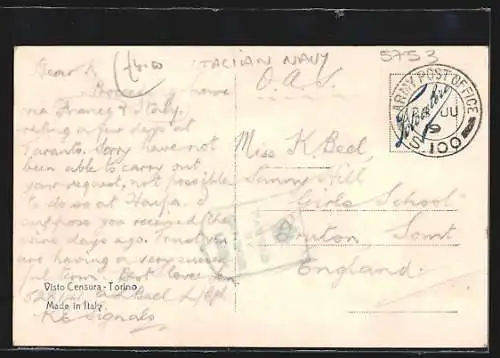 £4.50
ITALIAN NAVY
5753
Dear K
Proceeding home
via France & Italy,
resting a few days at
Taranto. Sorry have not
been able to carry out
your request, not possible
to do so at Haifa. I
suppose you received the
wire days ago. Trust you
are having a very success
ful term. Best love
Bed L/Cpl
R C Signals
O.A.S.
Miss K. Bed
Sunny Hill
Girls School
Bruton Somt
England.
ARMY POST OFFICE
JU
S.100
Visto Censura - Torino
Made in Italy